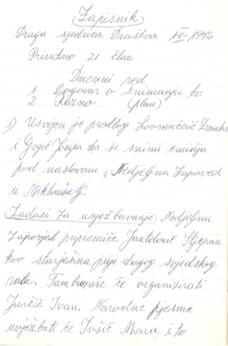 Zapisnik
Druga sjednica Društva
Prisutno 21 član
Dnevni red
1 Dogovor o snimanju tv.
2 Razno (plan)
1) Usvojen je predlog
i Grgić Josipa da se snimi emisija
pod naslovom „Nedjeljna Zapovjed
u
Zadaci za uvježbavanje Nedjeljne
Zapovjed pripremiće Stjepan
kao starješina prije drugog svjedskog
rata. Tamburaše će organizirati
Jurčić Ivan. Narodne pjesme
uvježbati će Ivšić Mara i to